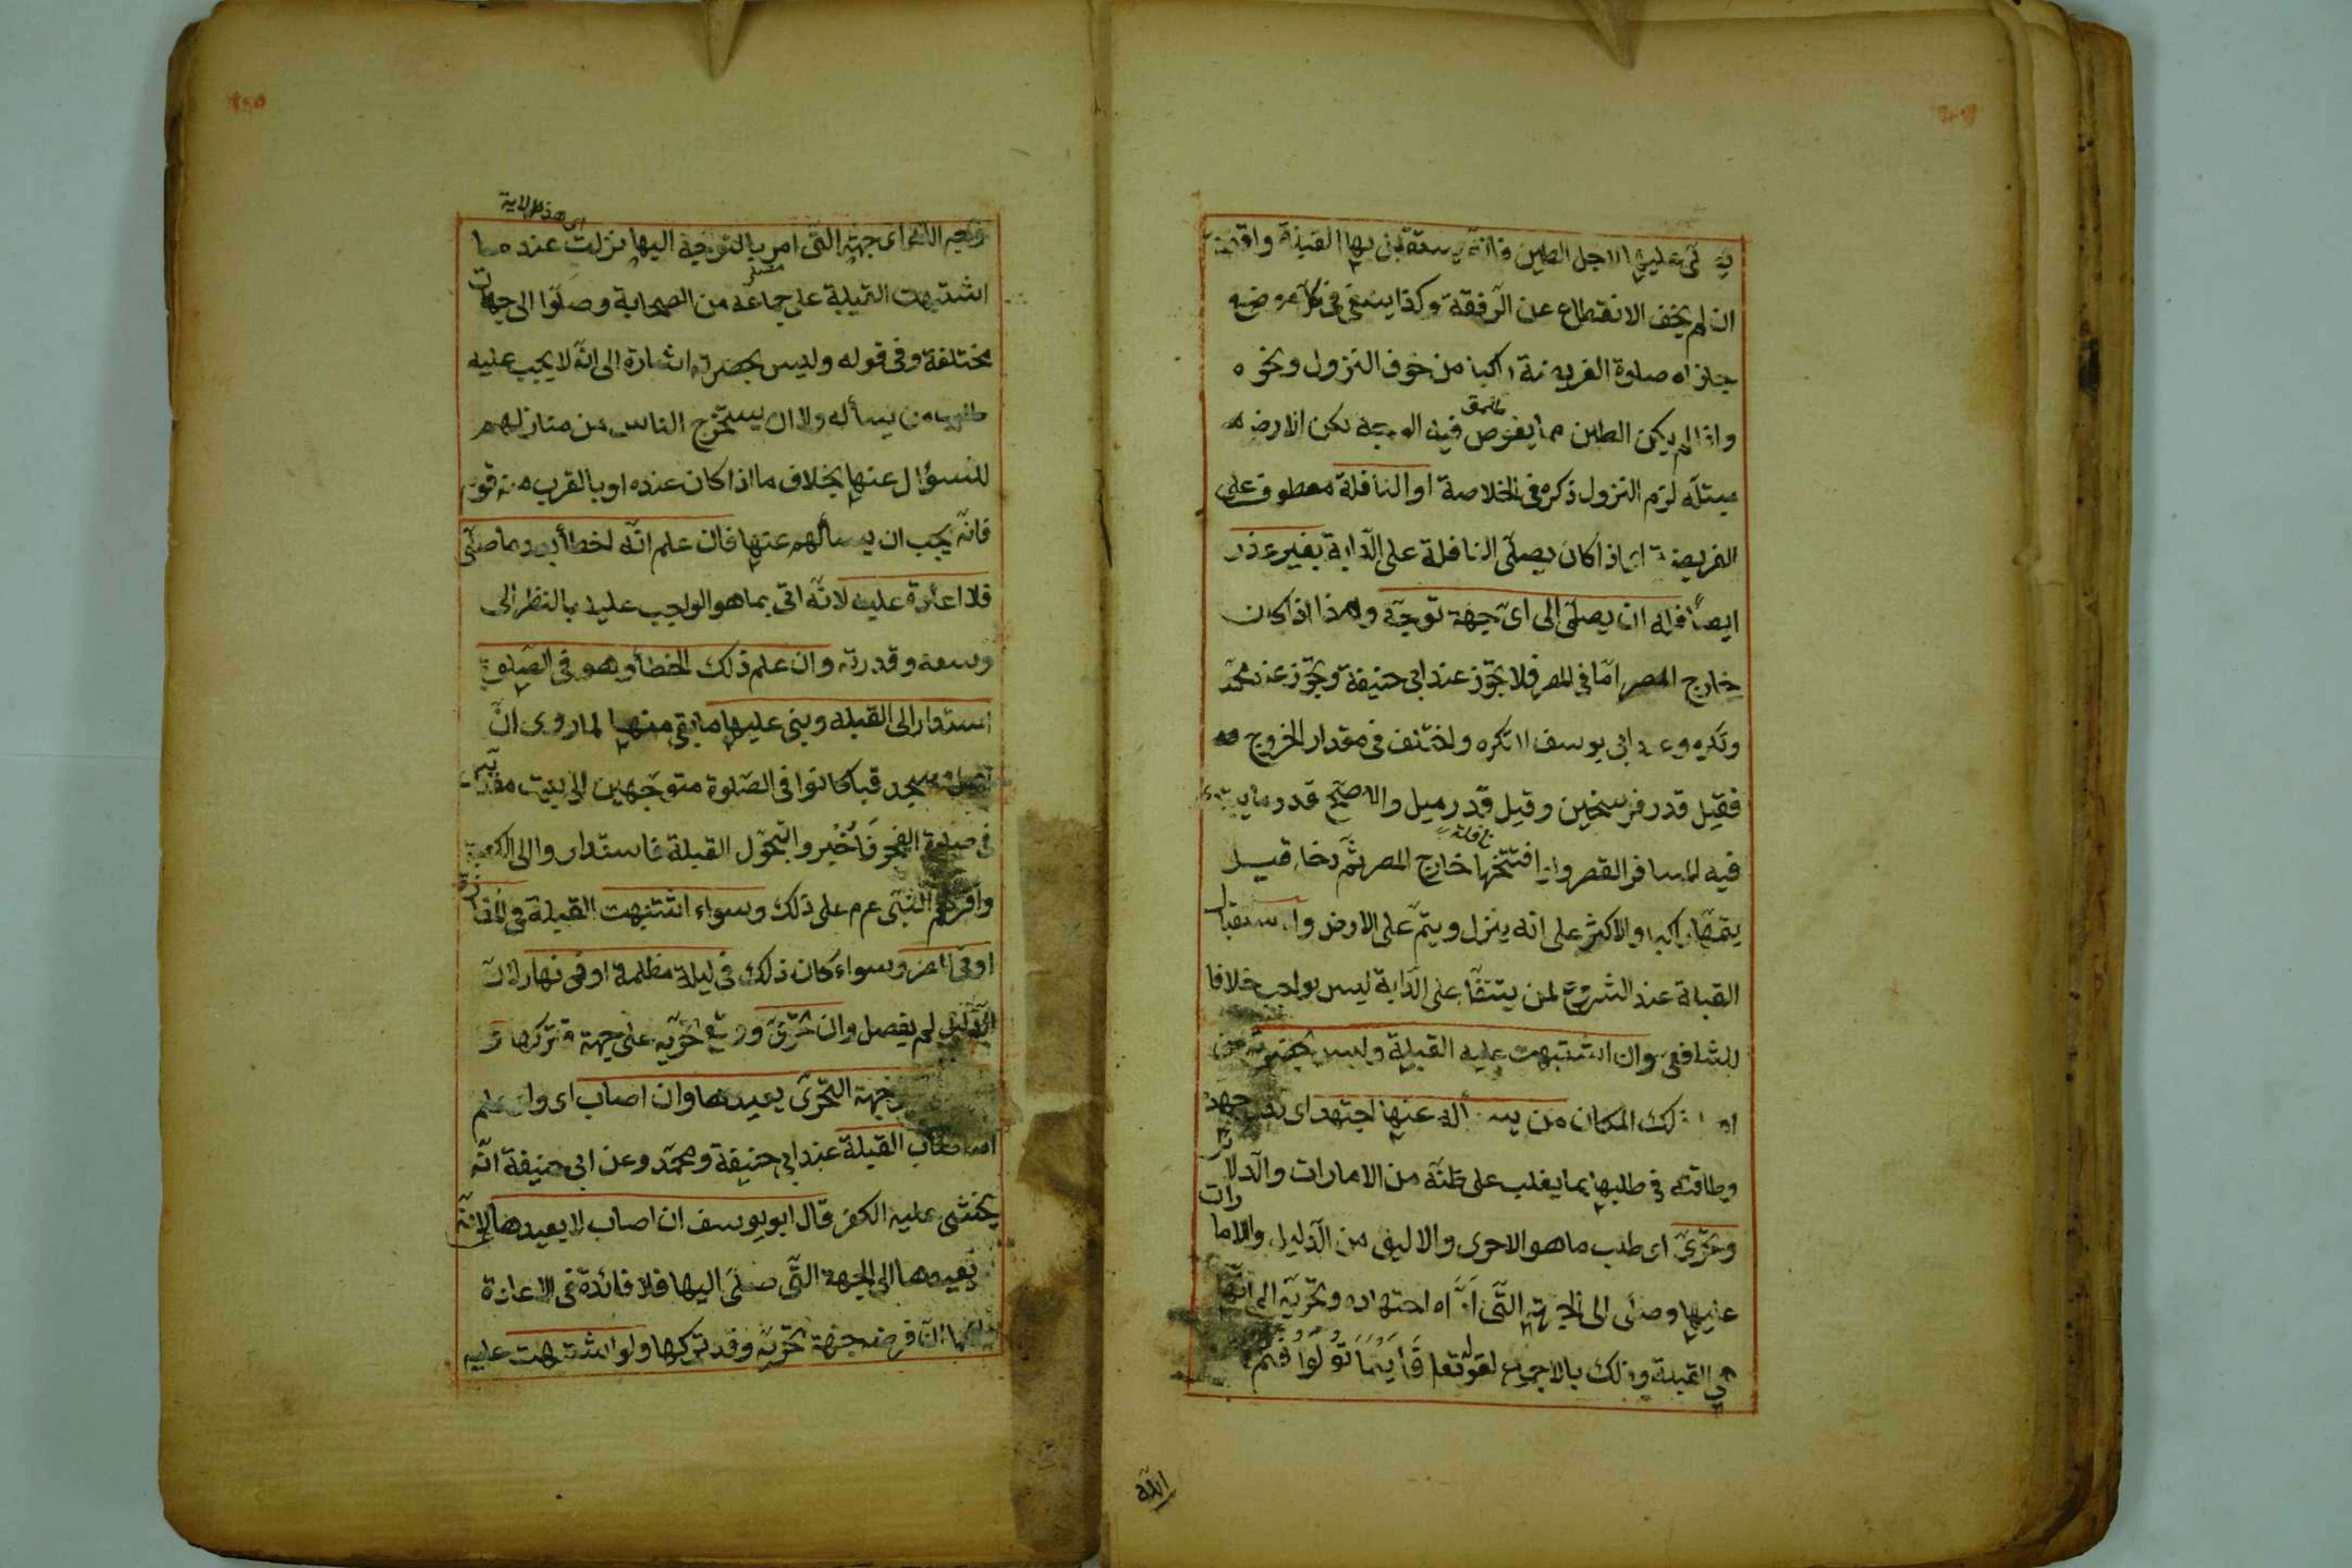 عليها لاجل الطين فانه القبلة
ان لم يخف الانقطاع عن الرفقة وكذا ينبغي في
صلوة الفريضة راكبا من خوف النزول ونحوه
واذا لم يكن الطين مما يغوص فيه الوجه لكن الارض
مبتلة لزم النزول ذكره في الخلاصة او النافلة معطوف على
الفريضة اى اذا كان يصلّى النافلة على الدّابة بغير عذر
ايضًا فله ان يصلّى الى اىّ جهة توجّه وهذا اذا كان
خارج المصر امّا في المصر فلا يجوز عند ابى حنيفة ويجوز عند محمّد
وتكره وعند ابى يوسف لا تكره واختلف في مقدار الخروج
فقيل قدر فرسخين وقيل قدر ميل والاصحّ قدر ما
فيه للمسافر القصر وان افتتحها خارج المصر ثمّ دخل قيل
نافلة
يتمّها راكبا والاكثر على انه ينزل ويتمّ على الارض واستقبال
القبلة عند الشروع لمن يتنفّل على الدّابة ليس بواجب خلافا
للشافعى وان اشتبهت عليه القبلة وليس بحضرته من
ذلك المكان من يسأله عنها اجتهد اى بذل جهده
وطاقته في طلبها بما يغلب على ظنّه من الامارات والدلا
وتحرّى اى طلب ما هو الاحرى والاليق من الدّليل والاما
رات
عليها وصلّى الى الجهة التّى ادّاه اجتهاده وتحرّيه الى انّها
هي القبلة وذلك بالاجماع لقوله تعا فَاَيْنَمَا تُوَلُّوا فَثَمَّ
الله
اى هذه الاية
وجه الله اى جهته التى امر بالتوجّه اليها نزلت عند ما
اشتبهت القبلة على جماعة من الصحابة وصلّوا الى جهات
مختلفة وفى قوله وليس بحضرته اشارة الى انّه لا يجب عليه
طلب من يسأله ولا ان يستخرج الناس من منازلهم
للسؤال عنها بخلاف ما اذا كان عنده او بالقرب منه قوم
فانّه يجب ان يسألهم عنها فان علم انّه اخطأ بعد ما صلّى
فلا اعادة عليه لانّه اتى بما هو الواجب عليه بالنظر الى
وسعه وقدرته وان علم ذلك الخطأ وهو في الصّلوة
استدار الى القبلة وبنى عليها ما بقى منها لما روى انّ
مسجد قبا كانوا في الصّلوة متوجّهين الى بيت مقدس
في صلوة الفجر فَاُخْبِروا بتحوّل القبلة فاستداروا الى الكعبة
واقرّهم النّبى عم على ذلك وسواء اشتبهت القبلة في المفازة
او في المصر وسواء كان ذلك في ليلة مظلمة او في نهار لانّ
الدّليل لم يفصل وان تحرّى ووقع تحرّيه على جهة فتركها و
جهة التحرّى يعيدها وان اصاب اى وان علم
اصاب القبلة عند ابى حنيفة ومحمّد وعن ابى حنيفة انّه
يخشى عليه الكفر قال ابو يوسف ان اصاب لا يعيدها لانّه
يعيدها الى الجهة التّى صلّى اليها فلا فائدة في الاعادة
انّ فرضه جهة تحرّيه وقد تركها ولو اشتبهت عليه